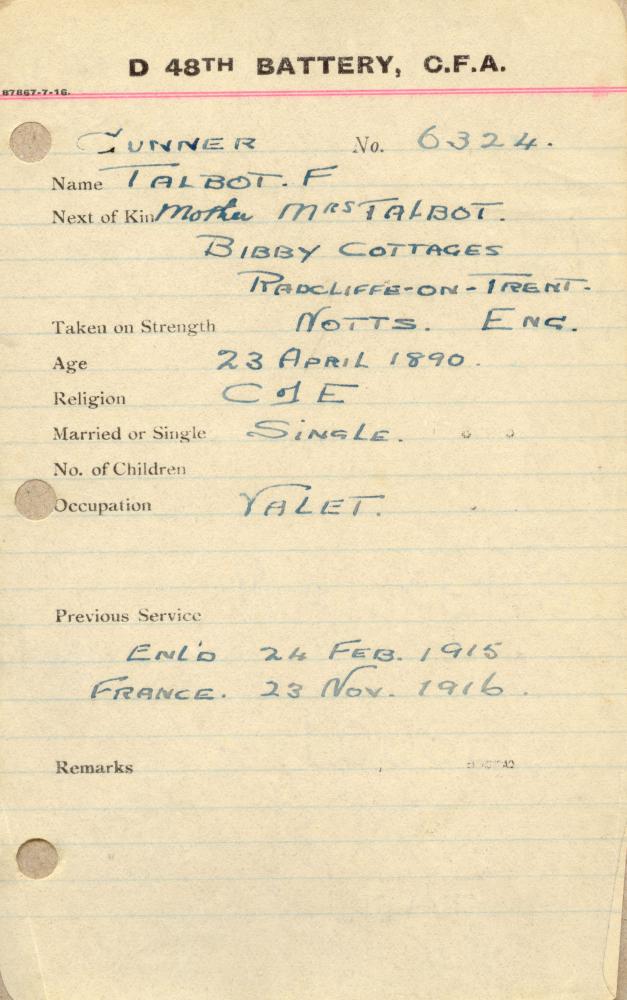 D 48TH BATTERY, C.F.A.
87867-7-16.
GUNNER No. 6324.
Name TALBOT. F
Next of Kin Mother MRS TALBOT.
BIBBY COTTAGES
RADCLIFFE-ON-TRENT.
Taken on Strength NOTTS. ENG.
Age 23 APRIL 1890.
Religion C of E
Married or Single SINGLE.
No. of Children
Occupation VALET.
Previous Service
ENL'D 24 FEB. 1915
FRANCE. 23 NOV. 1916.
Remarks